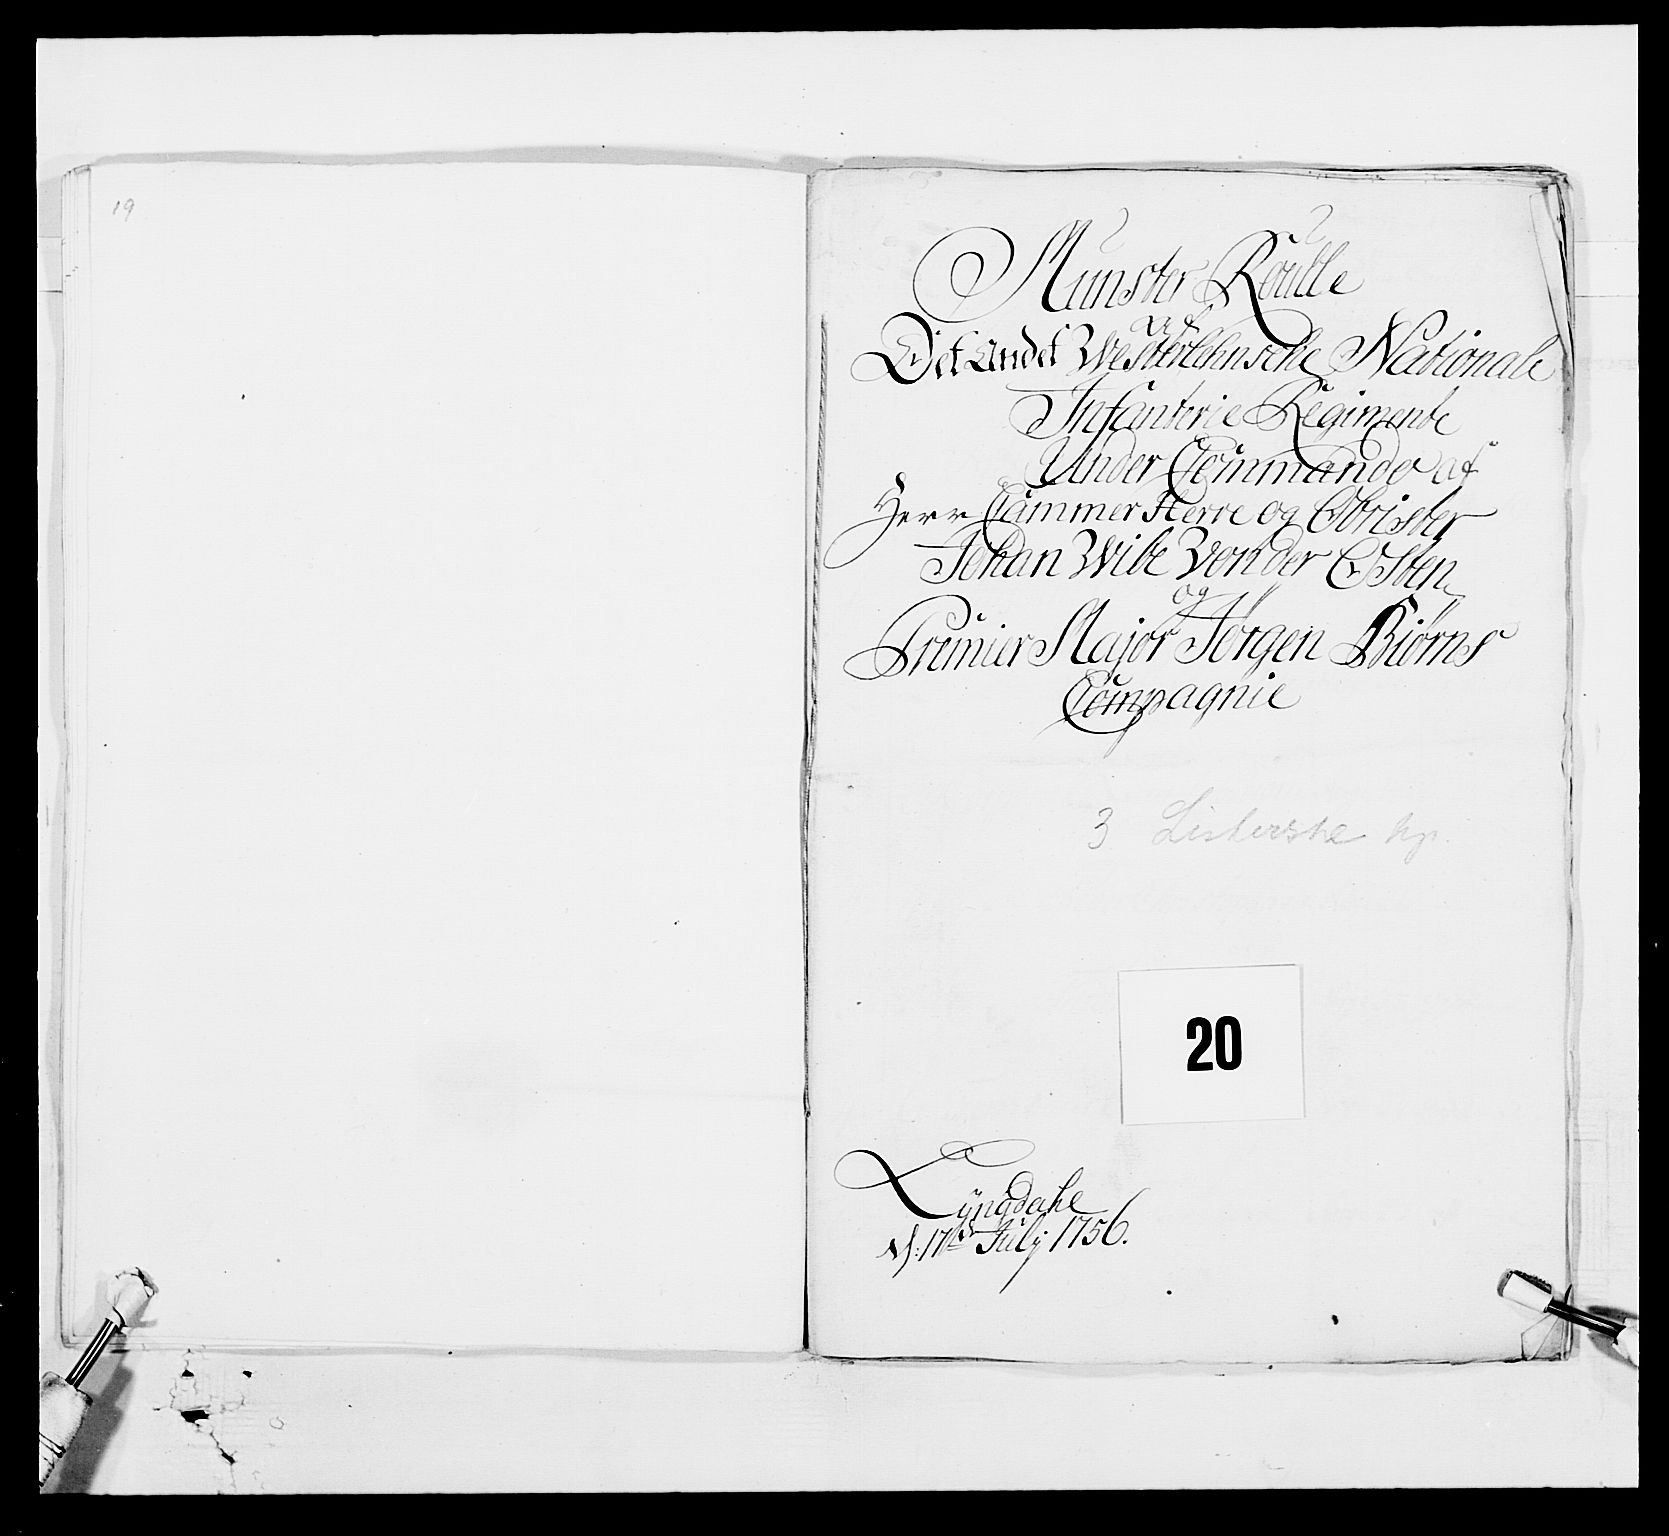 19
Munster Roulle
af
Det Andet Westerlehnsche Nationale
Infanterie Regimente
Under Commando af
Herr Cammer Herre og Obrister
Johan Wibe Von der Osten
og
Premier Major Jörgen Biörns
Compagnie
3 Listerske kp.
20
Lyngdahl
d: 17de Julÿ 1756.